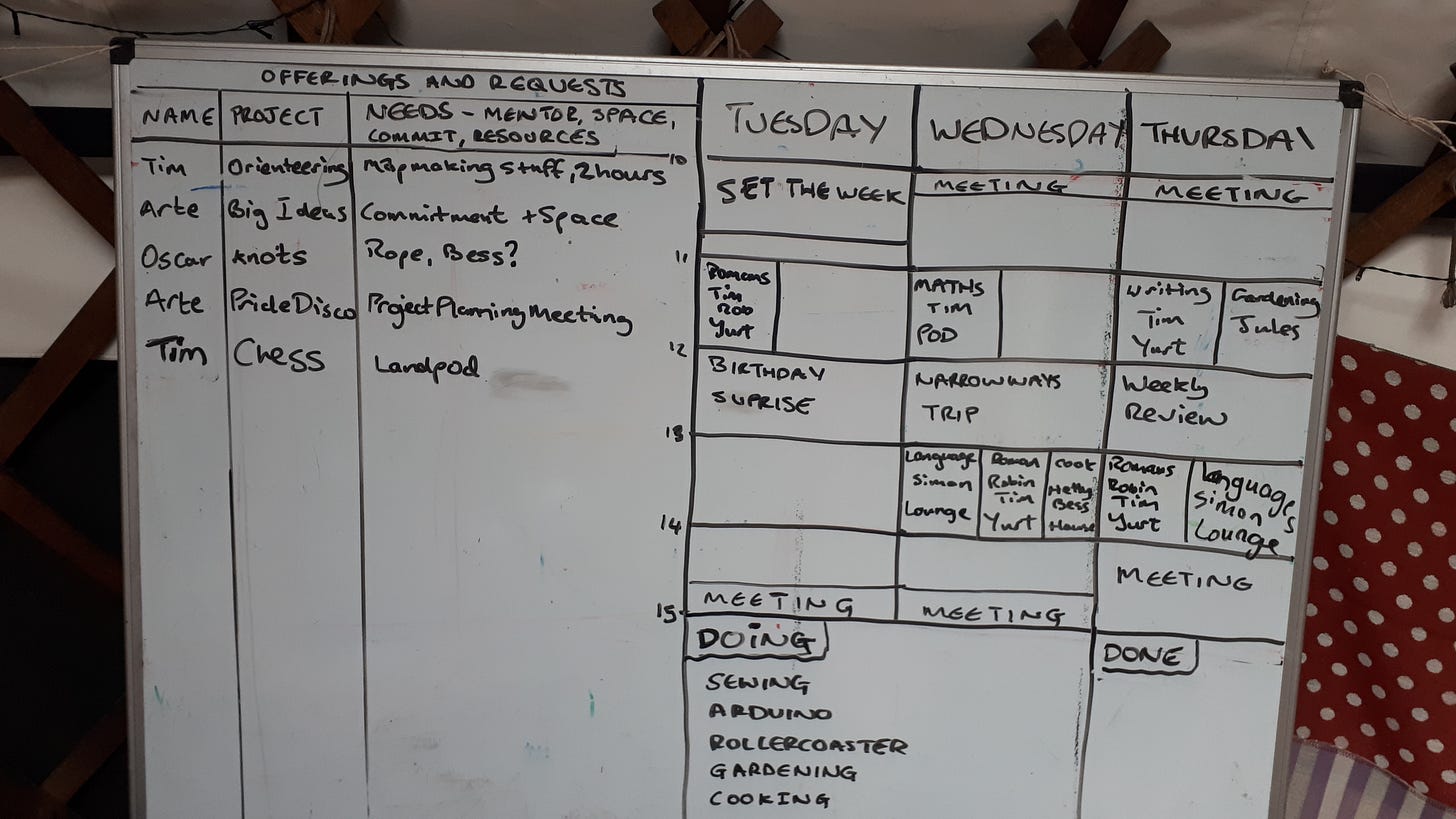 OFFERINGS AND REQUESTS
NAME PROJECT NEEDS - MENTOR, SPACE,
COMMIT, RESOURCES
Tim Orienteering Mapmaking stuff, 2hours
Arte Big Ideas Commitment + Space
Oscar knots Rope, Bess?
Arte PrideDisco ProjectPlanningMeeting
Tim Chess Landpod
TUESDAY WEDNESDAY THURSDAY
10
SET THE WEEK
MEETING MEETING
11
Romans
Tim
Rob
Yurt
MATHS
TIM
POD
Writing
Tim
Yurt
Gardening
Jules
12
BIRTHDAY
SUPRISE
NARROWWAYS
TRIP
Weekly
Review
13
Language
Simon
Lounge
Roman
Robin
Tim
Yurt
Cook
Hetty
Bess
House
Romans
Robin
Tim
Yurt
Languages
Simon
Lounge
14
MEETING
MEETING MEETING
15
DOING
SEWING
ARDUINO
ROLLERCOASTER
GARDENING
COOKING
DONE